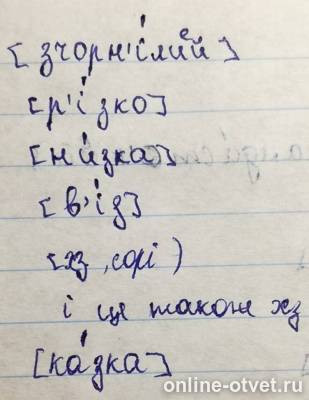 [зчорн'і́лий^е]
[р'і́зко]
[ни́зка]
[в'і́з]
[хз, сорі)
і це також хз
[ка́зка]
online-otvet.ru